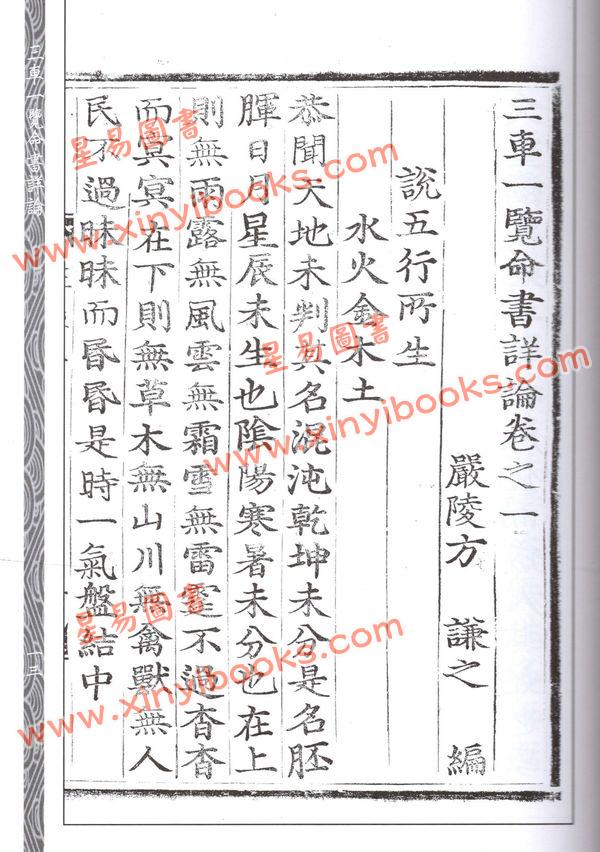 三車一覽命書詳論卷之一
嚴陵方 謙之 編
說五行所生
水火金木土
恭聞天地未判其名混沌乾坤未分是名胚
腪日月星辰未生也陰陽寒暑未分也在上
則無雨露無風雲無霜雪無雷霆不過杳杳
而冥冥在下則無草木無山川無禽獸無人
民不過昧昧而昬昬是時一氣盤結中
三車一覽命書詳論
一三
星易圖書
www.xinyibooks.com
星易圖書
www.xinyibooks.com
星易圖書
www.xinyibooks.com